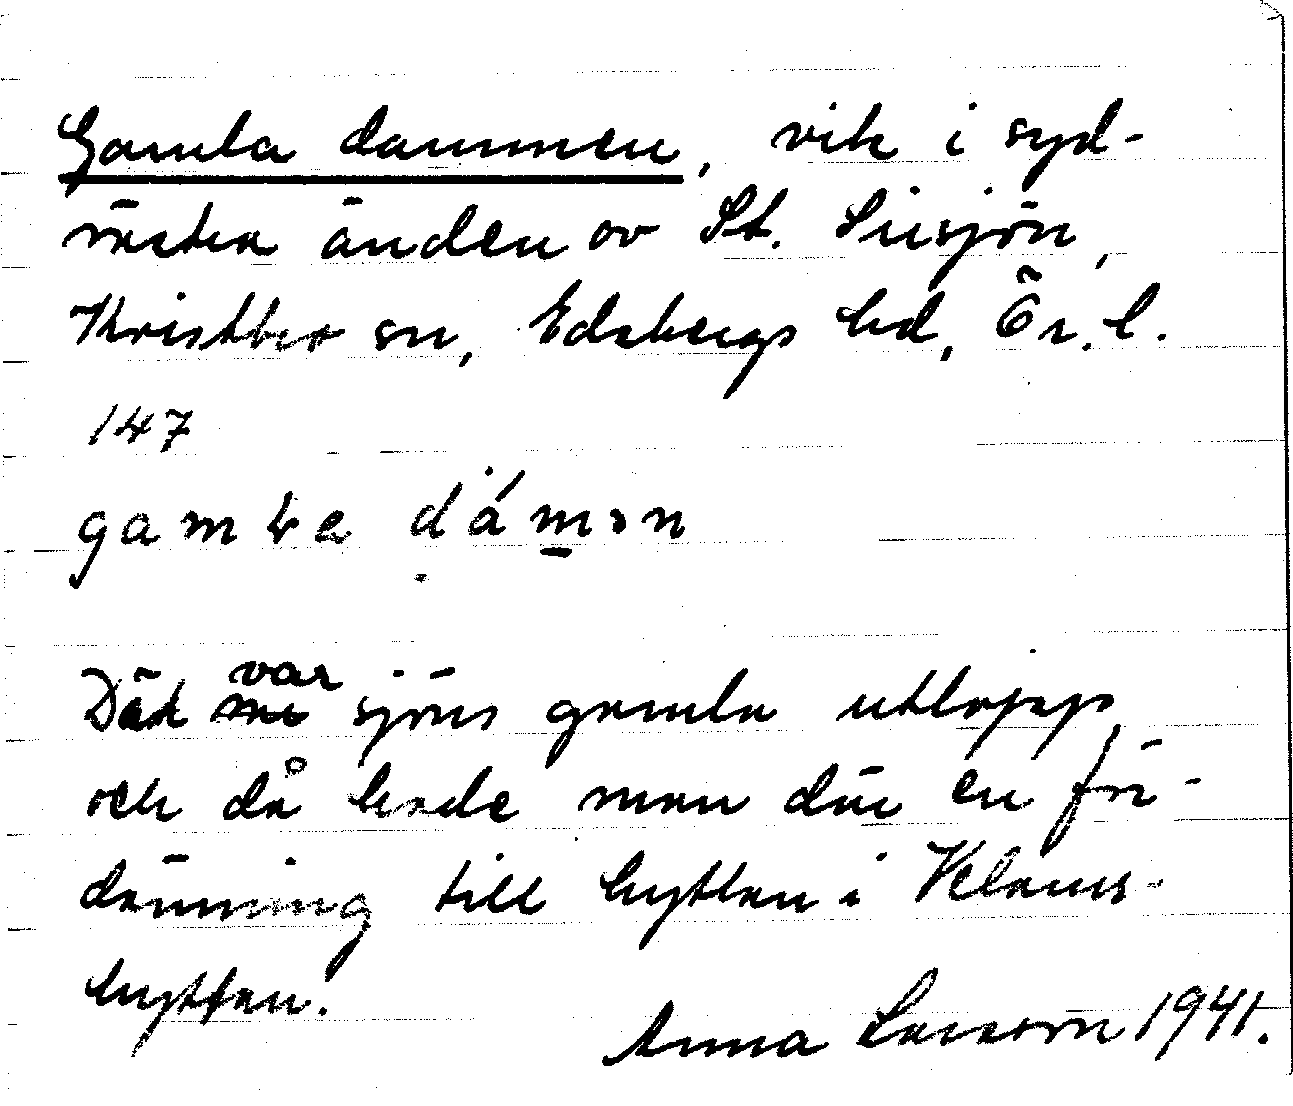 Gamla dammen, vik i syd-
västra änden av St. Lissjön,
Kvistbro sn, Edsbergs hd, Ör. l.
147
gamla dámən
Där var sjöns gamla utlopp
och då hade man där en för-
dämning till hyttan i Klams-
hyttan.
Anna Larsson 1941.